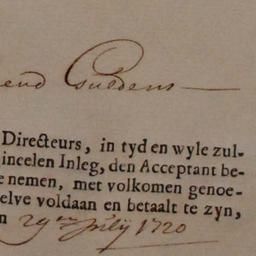 end Guldens
Directeurs, in tyd en wyle zul-
incelen Inleg, den Acceptant be-
e nemen, met volkomen genoe-
elve voldaan en betaalt te zyn,
n 29en July 1720